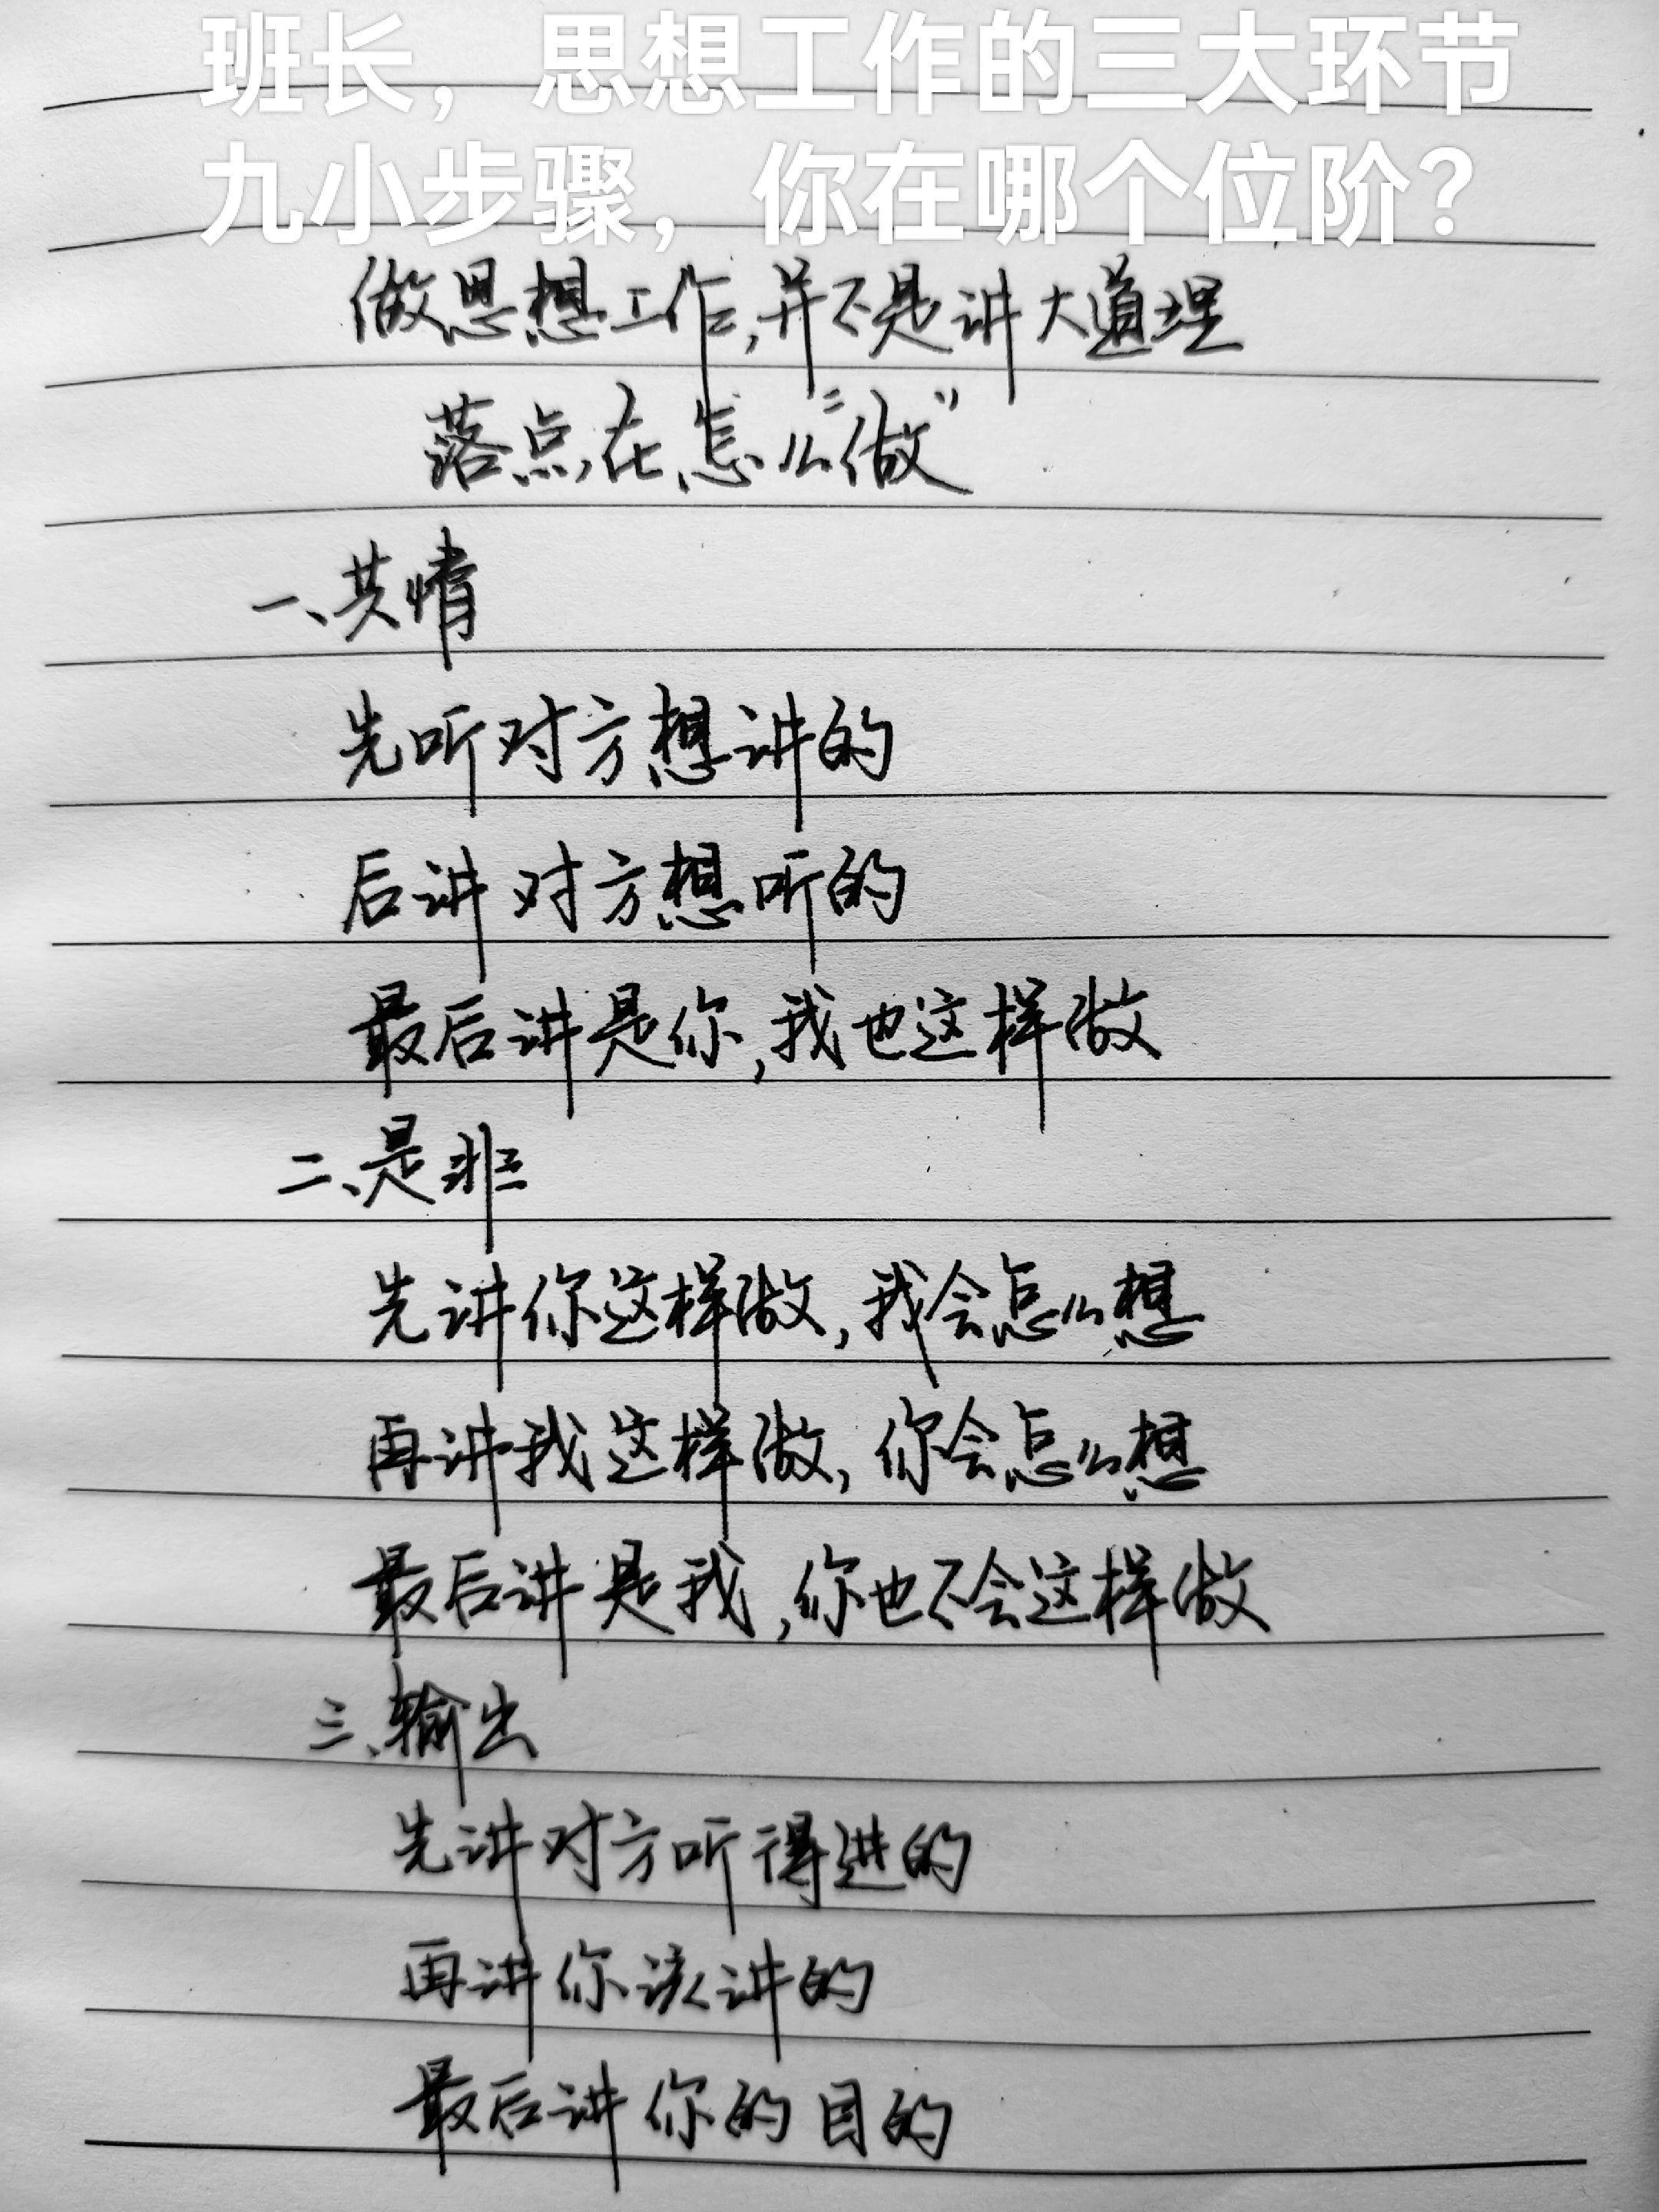 班长，思想工作的三大环节
九小步骤，你在哪个位阶？
做思想工作，并不是讲大道理
落点在怎么“做”
一、共情
先听对方想讲的
后讲对方想听的
最后讲是你，我也这样做
二、是非
先讲你这样做，我会怎么想
再讲我这样做，你会怎么想
最后讲是我，你也不会这样做
三、输出
先讲对方听得进的
再讲你该讲的
最后讲你的目的